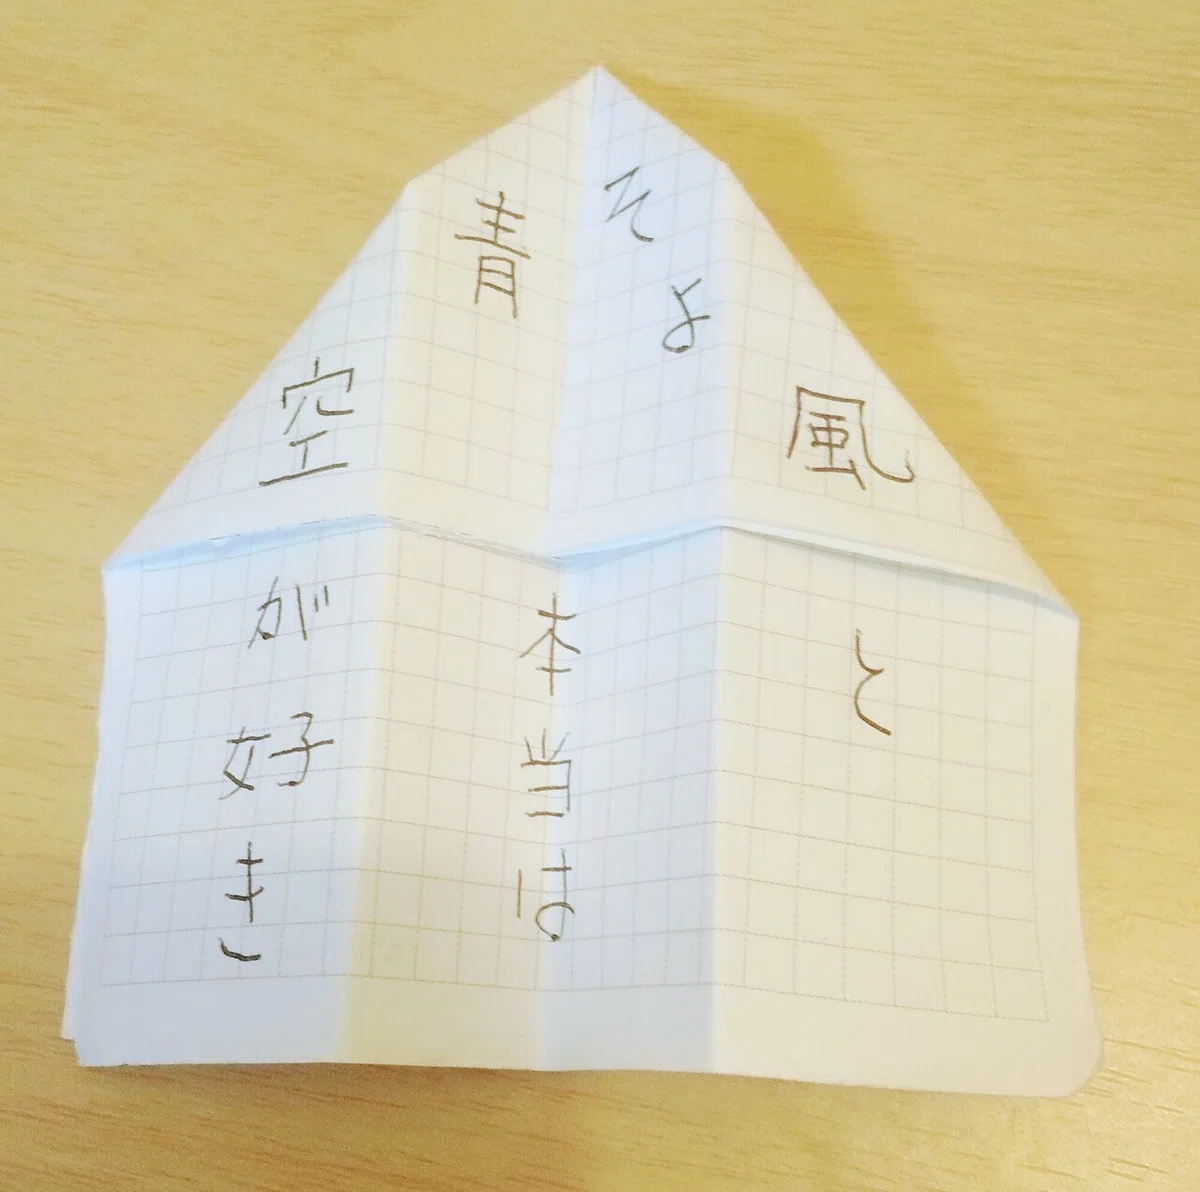 そよ風と
本当は
青空が好き